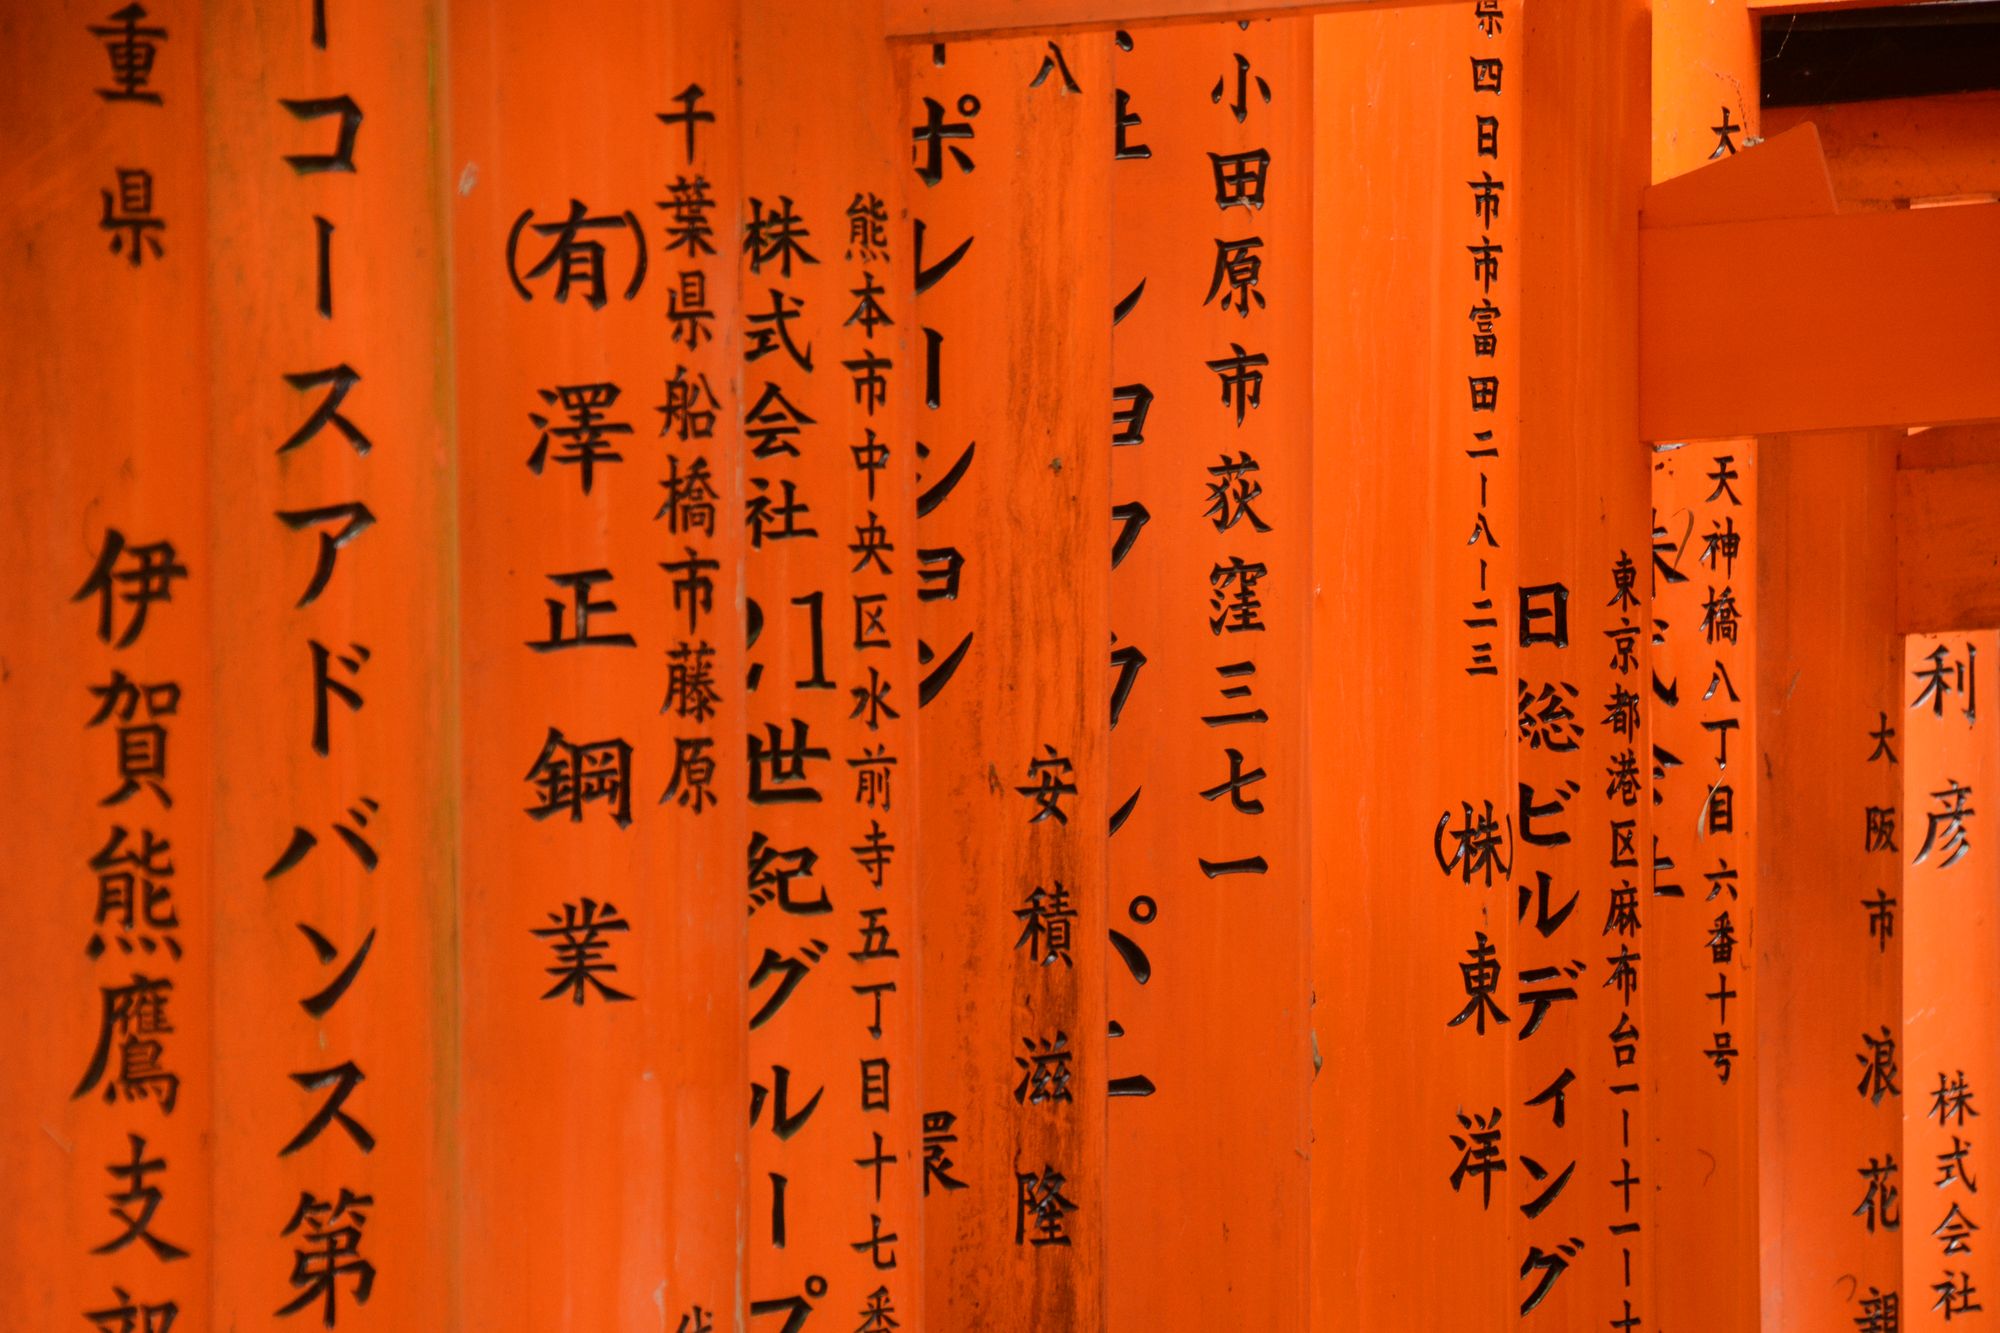 重県
伊賀熊鷹支部
ーコースアドバンス第
(有)澤正鋼業
千葉県船橋市藤原
株式会社21世紀グループ
熊本市中央区水前寺五丁目十七番
ポレーション
環
八
安積滋隆
小田原市荻窪三七一
県四日市市富田二ー八ー二三
(株)東洋
日総ビルディング
東京都港区麻布台一ー十一ー十
株式会社
大
天神橋八丁目六番十号
大阪市浪花親
利彦
株式会社